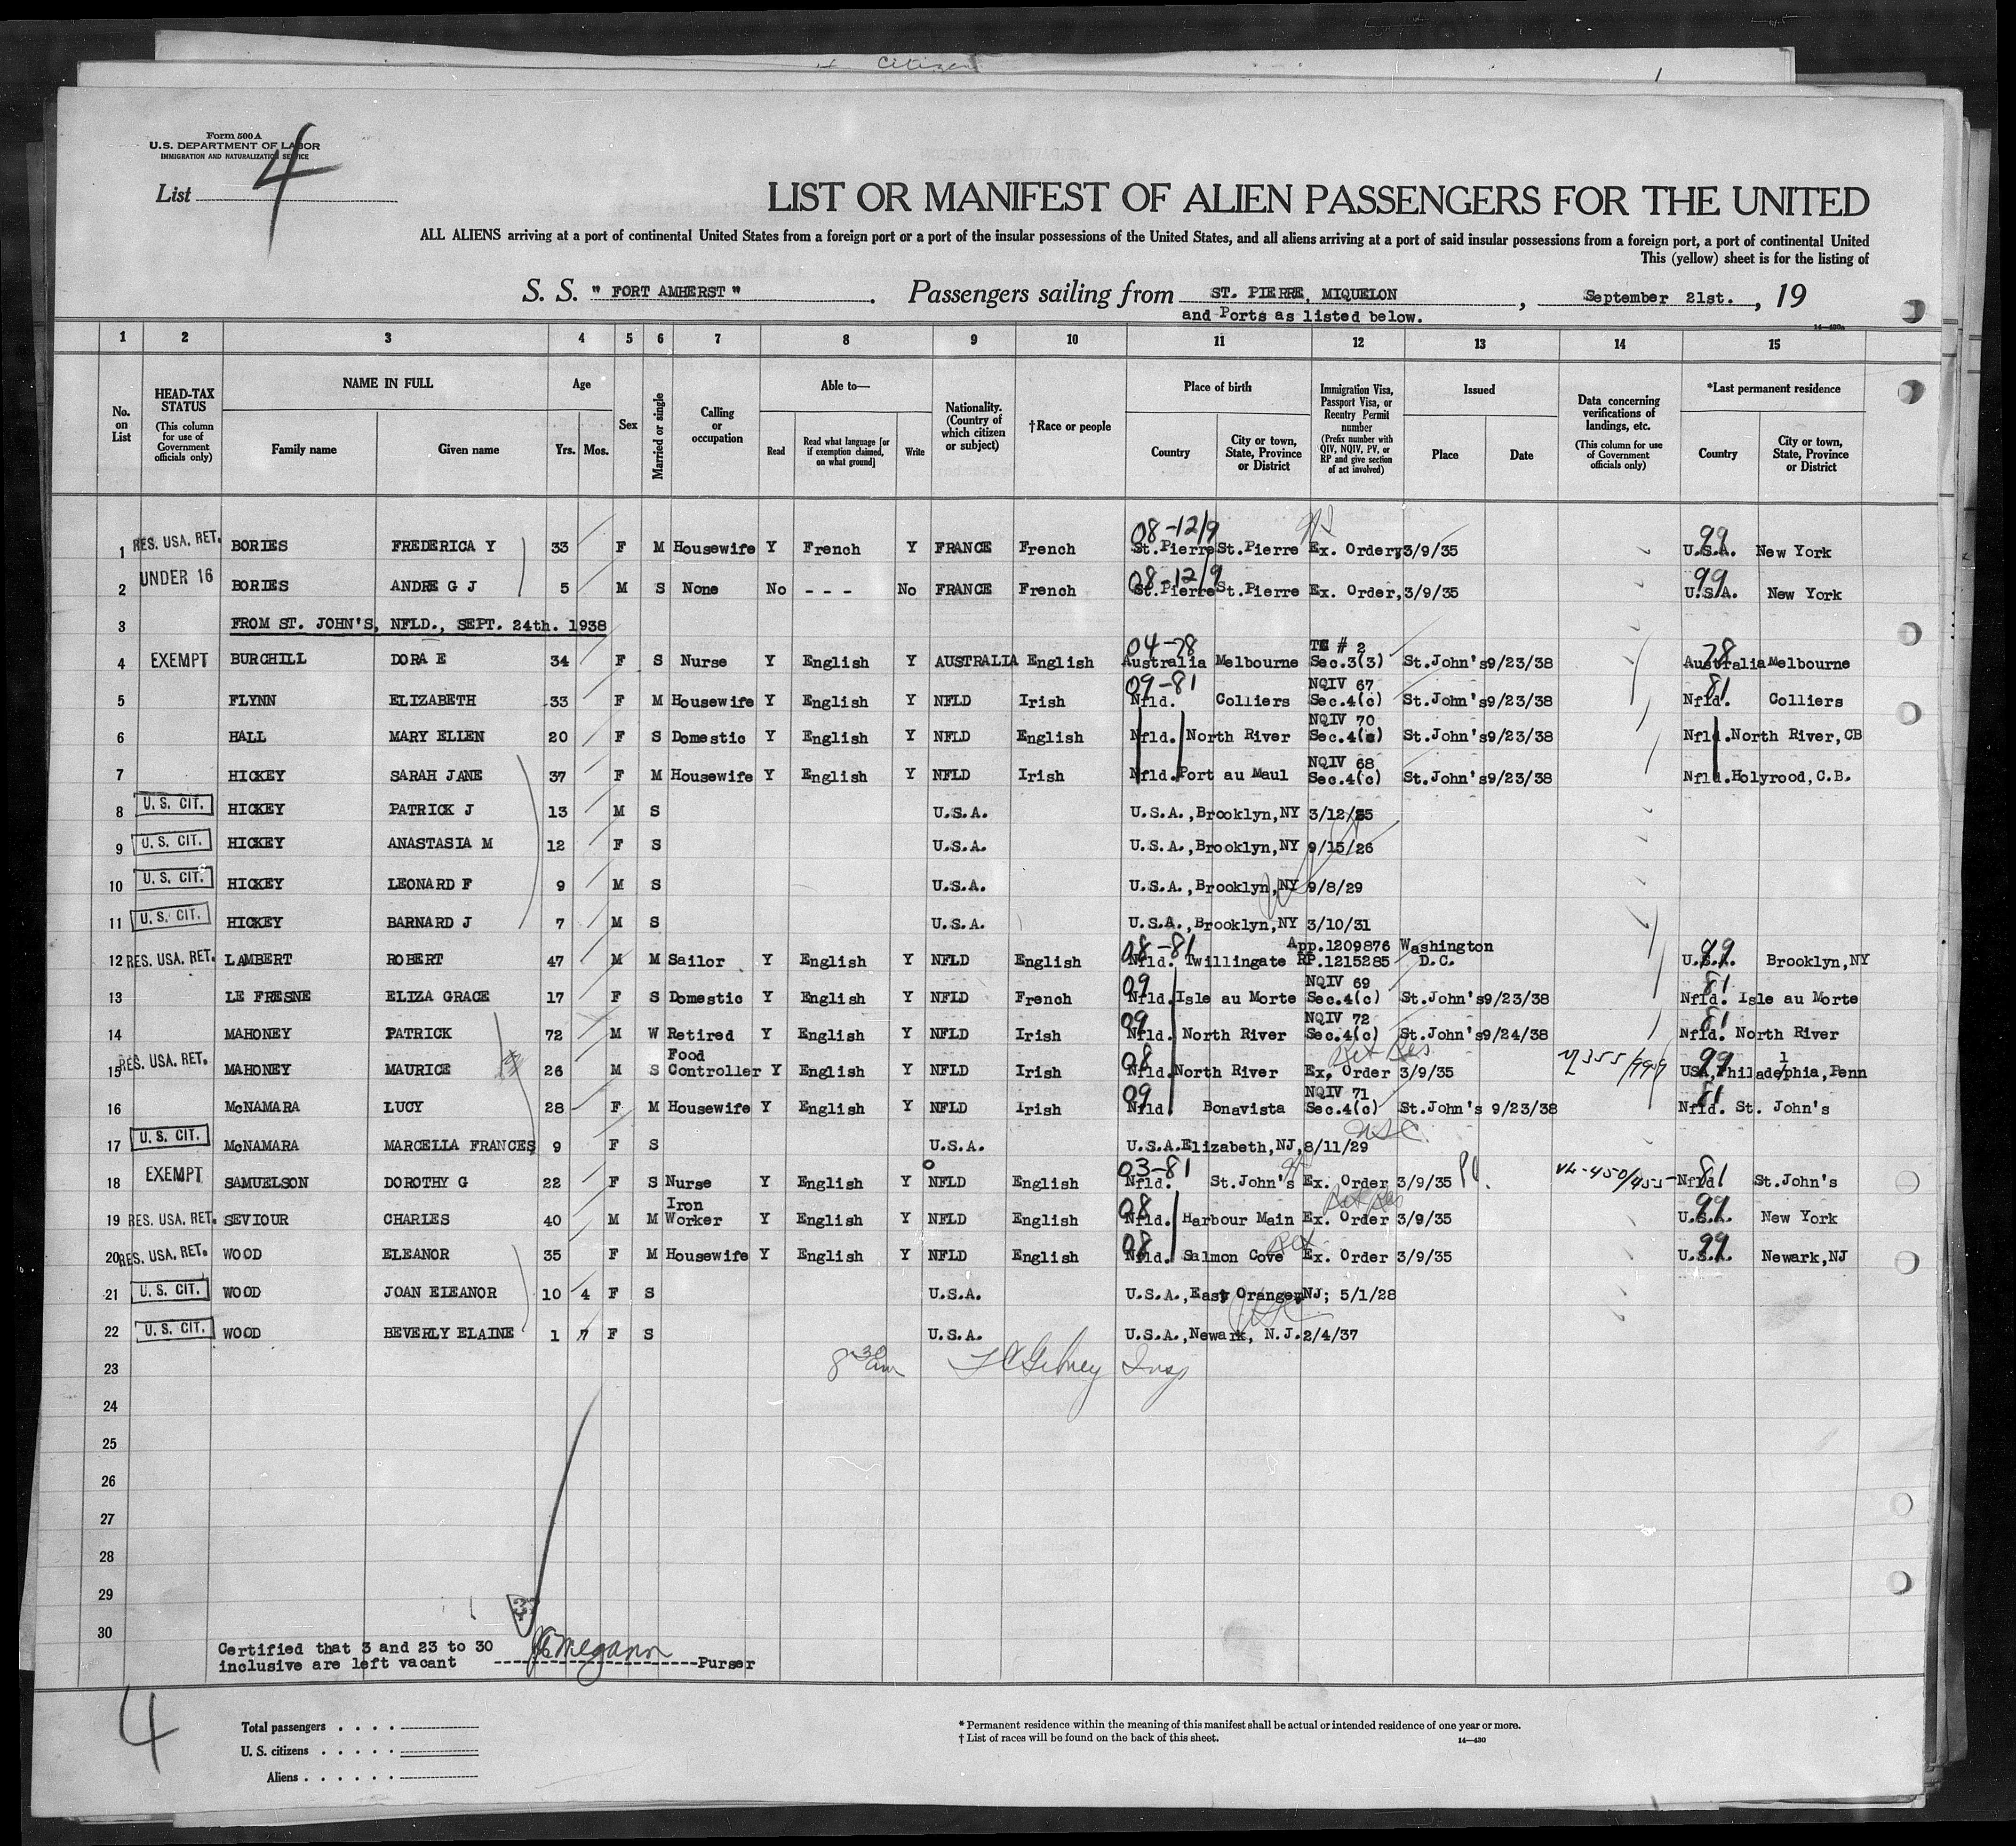 Citizen
Form 500 A
U.S. DEPARTMENT OF LABOR
IMMIGRATION AND NATURALIZATION SERVICE
List 4
LIST OR MANIFEST OF ALIEN PASSENGERS FOR THE UNITED
ALL ALIENS arriving at a port of continental United States from a foreign port or a port of the insular possessions of the United States, and all aliens arriving at a port of said insular possessions from a foreign port, a port of continental United
This (yellow) sheet is for the listing of
S. S. "FORT AMHERST". Passengers sailing from ST. PIERRE, MIQUELON, September 21st., 19
and Ports as listed below.
14—430a
1 2 3 4 5 6 7 8 9 10 11 12 13 14 15
No. on List
HEAD-TAX STATUS (This column for use of Government officials only)
NAME IN FULL
Family name Given name
Age
Yrs. Mos.
Sex
Married or single
Calling or occupation
Able to—
Read
Read what language [or if exemption claimed, on what ground]
Write
Nationality. (Country of which citizen or subject)
†Race or people
Place of birth
Country
City or town, State, Province or District
Immigration Visa, Passport Visa, or Reentry Permit number (Prefix number with QIV, NQIV, PV, or RP and give section of act involved)
Issued
Place Date
Data concerning verifications of landings, etc. (This column for use of Government officials only)
*Last permanent residence
Country
City or town, State, Province or District
08-12/9 99
1 RES. USA. RET. BORIES FREDERICA Y 33 F M Housewife Y French Y FRANCE French St.Pierre St.Pierre Ex. Order, 3/9/35 U.S.A. New York
08-12/9 99
2 UNDER 16 BORIES ANDRE G J 5 M S None No - - - No FRANCE French St.Pierre St.Pierre Ex. Order, 3/9/35 U.S.A. New York
3 FROM ST. JOHN'S, NFLD., SEPT. 24th. 1938
04-78 # 2 78
4 EXEMPT BURCHILL DORA E 34 F S Nurse Y English Y AUSTRALIA English Australia Melbourne Sec.3(3) St.John's 9/23/38 Australia Melbourne
09-81 NQIV 67 81
5 FLYNN ELIZABETH 33 F M Housewife Y English Y NFLD Irish Nfld. Colliers Sec.4(c) St.John's 9/23/38 Nfld. Colliers
NQIV 70
6 HALL MARY ELLEN 20 F S Domestic Y English Y NFLD English Nfld. North River Sec.4(c) St.John's 9/23/38 Nfld. North River, CB
NQIV 68
7 HICKEY SARAH JANE 37 F M Housewife Y English Y NFLD Irish Nfld. Port au Maul Sec.4(c) St.John's 9/23/38 Nfld. Holyrood, C.B.
8 U. S. CIT. HICKEY PATRICK J 13 M S U.S.A. U.S.A., Brooklyn, NY 3/12/25
9 U. S. CIT. HICKEY ANASTASIA M 12 F S U.S.A. U.S.A., Brooklyn, NY 9/15/26
10 U. S. CIT. HICKEY LEONARD F 9 M S U.S.A. U.S.A., Brooklyn, NY 9/8/29
11 U. S. CIT. HICKEY BARNARD J 7 M S U.S.A. U.S.A., Brooklyn, NY 3/10/31
08-81 App.1209876 Washington 99
12 RES. USA. RET. LAMBERT ROBERT 47 M M Sailor Y English Y NFLD English Nfld. Twillingate RP.1215285 D.C. U.S.A. Brooklyn, NY
09 NQIV 69 81
13 LE FRESNE ELIZA GRACE 17 F S Domestic Y English Y NFLD French Nfld. Isle au Morte Sec.4(c) St.John's 9/23/38 Nfld. Isle au Morte
09 NQIV 72 81
14 MAHONEY PATRICK 72 M W Retired Y English Y NFLD Irish Nfld. North River Sec.4(c) St.John's 9/24/38 Nfld. North River
Food 08 Ret Res 99
15 RES. USA. RET. MAHONEY MAURICE 26 M S Controller Y English Y NFLD Irish Nfld. North River Ex. Order 3/9/35 USA, Philadelphia, Penn
09 NQIV 71 81
16 McNAMARA LUCY 28 F M Housewife Y English Y NFLD Irish Nfld. Bonavista Sec.4(c) St.John's 9/23/38 Nfld. St. John's
17 U. S. CIT. McNAMARA MARCELLA FRANCES 9 F S U.S.A. U.S.A. Elizabeth, NJ, 8/11/29 USC
03-81 81
18 EXEMPT SAMUELSON DOROTHY G 22 F S Nurse Y English Y NFLD English Nfld. St.John's Ex. Order 3/9/35 VL-450/455 Nfld St.John's
Iron 08 Ret Res 99
19 RES. USA. RET. SEVIOUR CHARLES 40 M M Worker Y English Y NFLD English Nfld. Harbour Main Ex. Order 3/9/35 U.S.A. New York
08 Ret 99
20 RES. USA. RET. WOOD ELEANOR 35 F M Housewife Y English Y NFLD English Nfld. Salmon Cove Ex. Order 3/9/35 U.S.A. Newark, NJ
21 U. S. CIT. WOOD JOAN ELEANOR 10 4 F S U.S.A. U.S.A., East Orange, NJ; 5/1/28
USC
22 U. S. CIT. WOOD BEVERLY ELAINE 1 7 F S U.S.A. U.S.A., Newark, N.J. 2/4/37
23 8 30 am Insp
24
25
26
27
28
29
30
Certified that 3 and 23 to 30
inclusive are left vacant ---------- Purser
4
Total passengers . . . .
U. S. citizens . . . . .
Aliens . . . . . .
* Permanent residence within the meaning of this manifest shall be actual or intended residence of one year or more.
† List of races will be found on the back of this sheet.
14—430